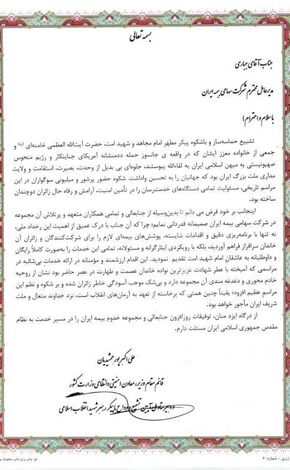 بسمه تعالی
جناب آقای جباری
مدیرعامل محترم شرکت سهامی بیمه ایران
با سلام و احترام؛
تشییع حماسه‌ساز و باشکوه پیکر مطهر امام مجاهد و شهید امت، حضرت آیت‌الله العظمی خامنه‌ای
جمعی از خانواده معزز ایشان که در واقعه ی جانسوز حمله ددمنشانه آمریکای جنایتکار و رژیم منحوس
صهیونیستی به میهن اسلامی ایران به لقاءالله پیوستند، جلوه‌ای بی بدیل از وحدت، بصیرت، استقامت و ولایت
مداری ملت بزرگ ایران بود که جهانیان را به تحسین واداشت. شکوه حضور پرشور و میلیونی سوگواران در این
مراسم تاریخی، مسئولیت تمامی دستگاه‌های خدمت‌رسان را در تأمین امنیت، آرامش و رفاه حال زائران دوچندان
ساخته بود.
اینجانب بر خود فرض می دانم تا بدین‌وسیله از جنابعالی و تمامی همکاران متعهد و پرتلاش آن مجموعه
در شرکت سهامی بیمه ایران صمیمانه قدردانی نمایم؛ چرا که آن جناب با درک عمیق از اهمیت این رخداد ملی،
نه تنها با برنامه‌ریزی دقیق و اقدامات شایسته، پوشش‌های بیمه‌ای لازم را برای شرکت‌کنندگان و زائران آن
خاندان سرافراز فراهم آوردید، بلکه با رویکردی ایثارگرانه و مسئولانه، تمامی این خدمات را به‌صورت کاملاً رایگان
و داوطلبانه به عاشقان امام شهید امت تقدیم نمودید. این اقدام ارزشمند و مؤمنانه در ارائه خدمات بی‌شائبه در
مراسمی که آمیخته با عطر شهادت عزیزترین نواده خاندان عصمت و طهارت در عصر حاضر بود نشان از روحیه
خادم محوری و دغدغه مندی آن مجموعه دارد و بی‌شک موجب آسودگی خاطر زائران شده و بر شکوه و نظم این
مراسم عظیم افزود؛ یقیناً چنین همتی که برخاسته از تعهد به آرمان‌های انقلاب است، نزد خداوند متعال و ملت
شریف ایران مأجور خواهد بود.
از درگاه ایزد منان، توفیقات روزافزون جنابعالی و مجموعه خدوم بیمه ایران را در مسیر خدمت به نظام
مقدس جمهوری اسلامی ایران مسئلت دارم.
علی اکبر پورجمشیدیان
قائم مقام وزیر و معاون امنیتی و انتظامی وزارت کشور